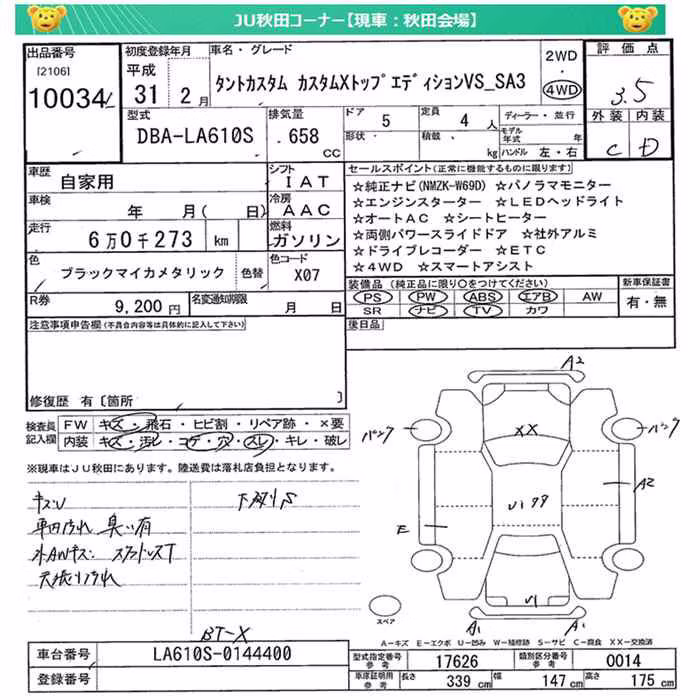 JU秋田コーナー【現車：秋田会場】
出品番号
[2106]
10034
初度登録年月
平成
31 2月
車名・グレード
タントカスタム カスタムXトップエディションVS_SA3
2WD
4WD
評価点
3.5
外装 内装
C D
型式
DBA-LA610S
排気量
658
CC
ドア
5
定員
4 人
形状
積載
kg
ディーラー・並行
モデル年式 年
ハンドル 左・右
車歴
自家用
シフト
IAT
車検
年 月( 日)
冷房
AAC
走行
6万0千273 km
燃料
ガソリン
色
ブラックマイカメタリック
色替
色コード
X07
R券
9,200円
名変通知期限
月 日
セールスポイント(正常に機能するものに限り)
☆純正ナビ(NMZK-W69D) ☆パノラマモニター
☆エンジンスターター ☆LEDヘッドライト
☆オートAC ☆シートヒーター
☆両側パワースライドドア ☆社外アルミ
☆ドライブレコーダー ☆ETC
☆4WD ☆スマートアシスト
装備品 (純正品に限り○をつけてください)
PS PW ABS エアB AW
SR ナビ TV カワ
新車保証書
有・無
後日品
注意事項申告欄(不具合内容等は具体的に記入して下さい)
修復歴 有〔箇所 〕
検査員
記入欄
FW キズ・飛石・ヒビ割・リペア跡・×要
内装 キズ・汚レ・コゲ・穴・スレ・キレ・破レ
※現車はJU秋田にあります。陸送費は落札店負担となります。
キズU
車内汚れ 臭い有
外AWキズ スタットレスT
天張り汚れ
下廻りS
BT-X
A2
パンク
パンク
XX
A2
E
A1
A1
スペア
A-キズ E-エクボ U-凹み W-補修跡 S-サビ C-腐食 XX-交換済
車台番号
LA610S-0144400
登録番号
型式指定番号
参考
17626
類別区分番号
参考
0014
車庫証明用
参考
長さ
339 cm
幅
147 cm
高さ
175 cm